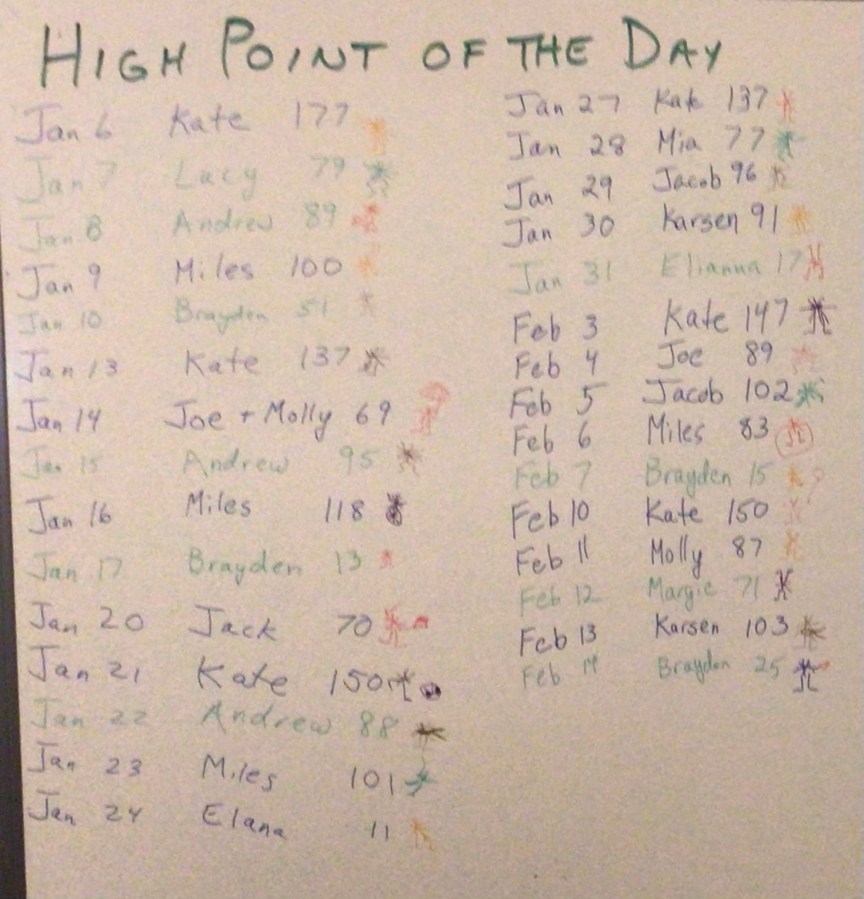 HIGH POINT OF THE DAY
Jan 6 Kate 177
Jan 7 Lucy 79
Jan 8 Andrew 89
Jan 9 Miles 100
Jan 10 Brayden 51
Jan 13 Kate 137
Jan 14 Joe + Molly 69
Jan 15 Andrew 95
Jan 16 Miles 118
Jan 17 Brayden 13
Jan 20 Jack 70
Jan 21 Kate 150
Jan 22 Andrew 88
Jan 23 Miles 101
Jan 24 Elana 11
Jan 27 Kate 137
Jan 28 Mia 77
Jan 29 Jacob 96
Jan 30 Karsen 91
Jan 31 Elianna 17
Feb 3 Kate 147
Feb 4 Joe 89
Feb 5 Jacob 102
Feb 6 Miles 83
Feb 7 Brayden 15
Feb 10 Kate 150
Feb 11 Molly 87
Feb 12 Margie 71
Feb 13 Karsen 103
Feb 14 Brayden 25